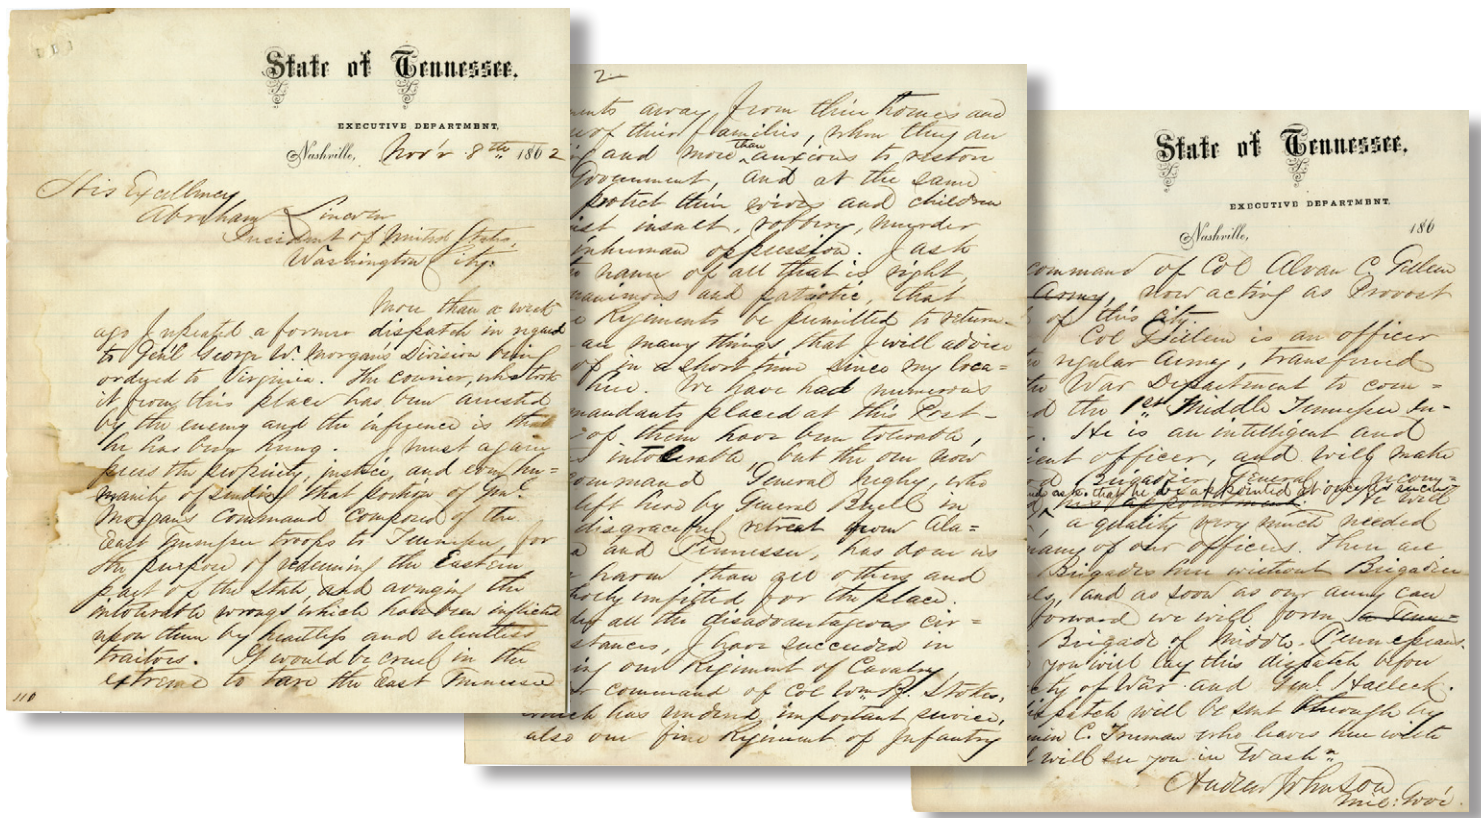 State of Tennessee.
EXECUTIVE DEPARTMENT,
Nashville, Nov'r 8th 1862
His Excellency
Abraham Lincoln
President of United States,
Washington City:
More than a week
ago I repeated a former dispatch in regard
to Gen'l George W. Morgan's Division being
ordered to Virginia. The courier, who took
it from this place has been arrested
by the enemy and the inference is that
he has been hung. I must again
press the propriety, justice, and even hu=
manity of sending that portion of Gen'l
Morgan's command composed of the
East Tennessee troops to Tennessee, for
the purpose of redeeming the Eastern
part of the State, and avenging the
intolerable wrongs which have been inflicted
upon them by heartless and relentless
traitors. It would be cruel in the
extreme to take the East Tennessee
110
2
ments away from their homes and
of their families, when they are
and more than anxious to restore
Government, and at the same
protect their wives and children
insult, robbery, murder
inhuman oppression. I ask
name of all that is right,
and patriotic, that
Regiments be permitted to return-
are many things that I will advise
of in a short time since my loca=
here. We have had numerous
mandants placed at this Post-
of them have been tolerable,
intolerable, but the one now
command, General Negley, who
left here by General Buell in
disgraceful retreat from Ala=
and Tennessee, has done us
harm than all others and
unfitted for the place.
all the disadvantageous cir=
stances, I have succeeded in
ing one Regiment of Cavalry
command of Col Wm. B. Stokes,
which has rendered important service,
also one fine Regiment of Infantry
State of Tennessee.
EXECUTIVE DEPARTMENT.
Nashville, 186
command of Col Alvan C. Gillem
Army, now acting as Provost
of this city.
Col Gillem is an officer
regular Army, transferred
War Department to com=
the 1st Middle Tennessee In-
He is an intelligent and
officer, and will make
Brigadier General
ask that he be appointed at once
his appointment He will
a quality very much needed
many of our officers. There are
Brigades here without Brigadier
and as soon as our army can
forward we will form a Tenn=
Brigade of Middle Tennesseans.
you will lay this dispatch before
of War and Gen. Halleck.
dispatch will be sent through by
C. Truman who leaves here
will see you in Washn
Andrew Johnson
Mil: Gov'r